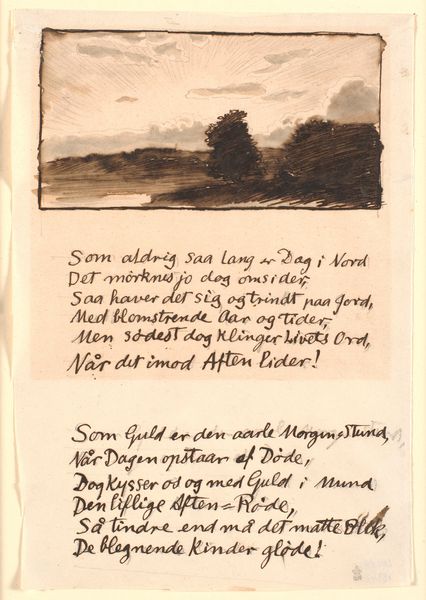 Som aldrig saa lang er Dag i Nord
Det mörknes jo dog omsider,
Saa haver det sig og trindt paa Jord,
Med blomstrende Aar og Tider,
Men sødest dog klinger Livets Ord,
Når det imod Aften lider!
Som Guld er den aarle Morgen=Stund,
Når Dagen opstaar af Døde,
Dog Kysser os og med Guld i Mund
Den liflige Aften=Røde,
Så tindre end må det matte Blik,
De blegnende Kinder gløde!